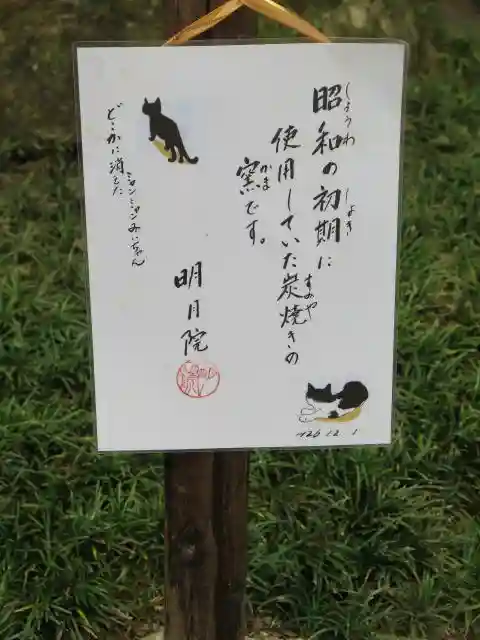 昭和の初期に
しょうわ
しょき
使用していた炭焼きの
すみや
窯です。
かま
明月院
どこかに消えた
ミャンミャンみぃちゃん